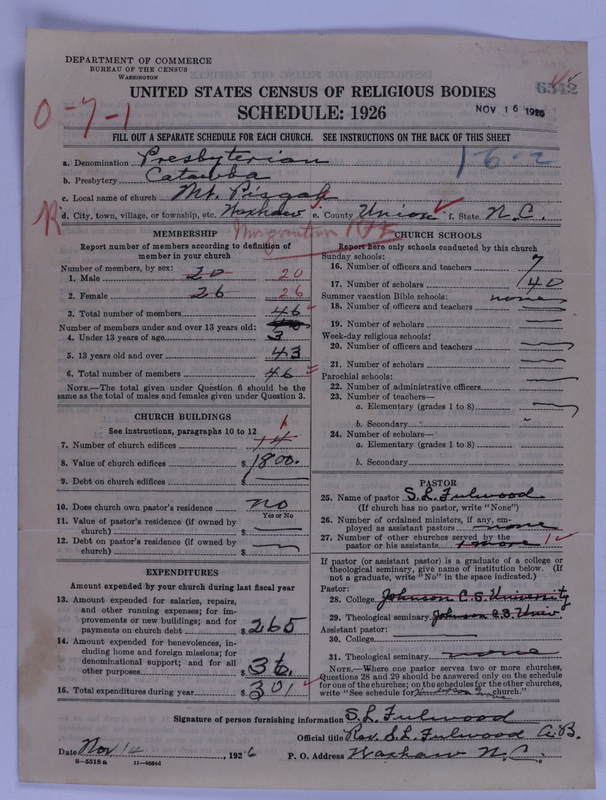 DEPARTMENT OF COMMERCE
BUREAU OF THE CENSUS
WASHINGTON
UNITED STATES CENSUS OF RELIGIOUS BODIES
SCHEDULE: 1926
NOV 16 1926
0-7-1
FILL OUT A SEPARATE SCHEDULE FOR EACH CHURCH. SEE INSTRUCTIONS ON THE BACK OF THIS SHEET
a. Denomination Presbyterian
1-6-2
b. Presbytery Catawba
c. Local name of church Mt. Pisgah
R d. City, town, village, or township, etc. Waxhaw e. County Union f. State N.C.
MEMBERSHIP
Report number of members according to definition of member in your church
Number of members, by sex:
1. Male 20 20
2. Female 26 26
3. Total number of members 46
Number of members under and over 13 years old:
4. Under 13 years of age 3
5. 13 years old and over 43
6. Total number of members 46
NOTE.—The total given under Question 6 should be the
same as the total of males and females given under Question 3.
CHURCH BUILDINGS
See instructions, paragraphs 10 to 12
7. Number of church edifices 1
8. Value of church edifices $1800.
9. Debt on church edifices $
10. Does church own pastor's residence no
Yes or No
11. Value of pastor's residence (if owned by
church) $
12. Debt on pastor's residence (if owned by
church) $
EXPENDITURES
Amount expended by your church during last fiscal year
13. Amount expended for salaries, repairs,
and other running expenses; for im-
provements or new buildings; and for
payments on church debt $265
14. Amount expended for benevolences, in-
cluding home and foreign missions; for
denominational support; and for all
other purposes $36.
15. Total expenditures during year $301
CHURCH SCHOOLS
Report here only schools conducted by this church
Sunday schools:
16. Number of officers and teachers 7
17. Number of scholars 40
Summer vacation Bible schools: none
18. Number of officers and teachers
19. Number of scholars
Week-day religious schools:
20. Number of officers and teachers
21. Number of scholars
Parochial schools:
22. Number of administrative officers
23. Number of teachers—
a. Elementary (grades 1 to 8)
b. Secondary
24. Number of scholars—
a. Elementary (grades 1 to 8)
b. Secondary
PASTOR
25. Name of pastor S. L. Fulwood
(If church has no pastor, write "None")
26. Number of ordained ministers, if any, em-
ployed as assistant pastors none
27. Number of other churches served by the
pastor or his assistants 1 more 1
If pastor (or assistant pastor) is a graduate of a college or
theological seminary, give name of institution below. (If
not a graduate, write "No" in the space indicated.)
Pastor:
28. College Johnson C.S. University
29. Theological seminary Johnson C.S. Univ.
Assistant pastor:
30. College
31. Theological seminary none
NOTE.—Where one pastor serves two or more churches,
Questions 28 and 29 should be answered only on the schedule
for one of the churches; on the schedules for the other churches,
write "See schedule for church."
Signature of person furnishing information S. L. Fulwood
Official title Rev. S. L. Fulwood A.B.
Date Nov 14, 1926 P. O. Address Waxhaw N.C.
8-5518a 11-9564d